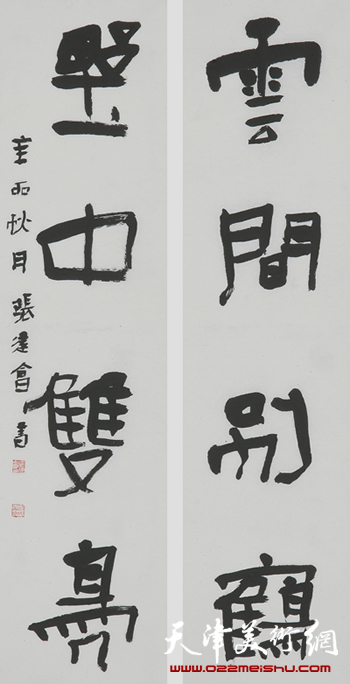 雲間別鶴
中雙鳧
辛卯秋月 張建會書
天津美術網
www.022meishu.com